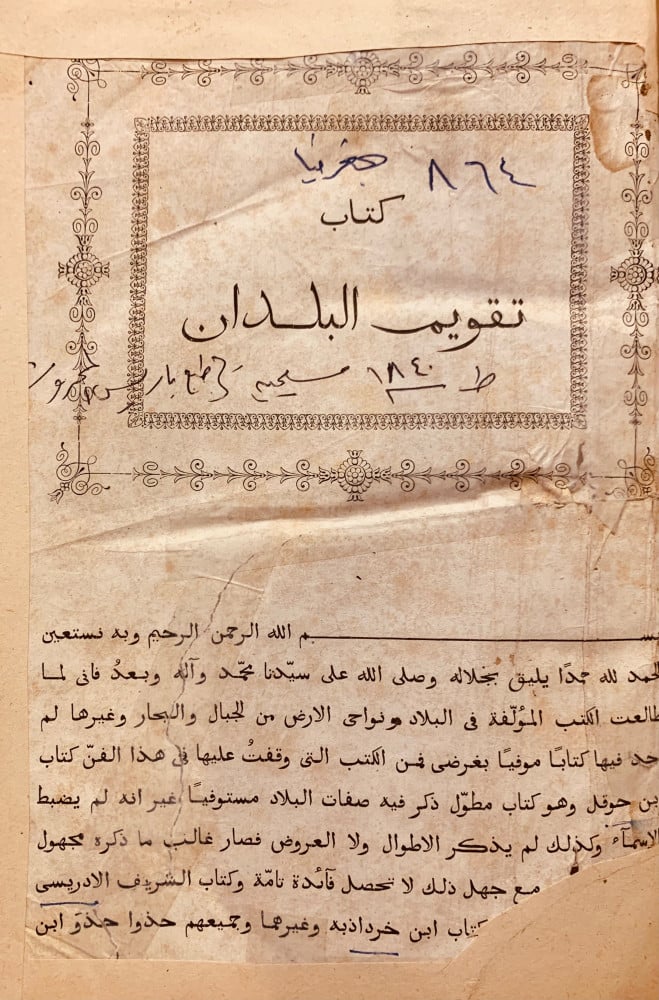 ٨٦٤ جغرفيا
كتاب
تقويم البلدان
ط ١٨٤٠ مسيحيه طبع باريس
بسم الله الرحمن الرحيم وبه نستعين
الحمد لله حمدًا يليق بجلاله وصلى الله على سيّدنا محمّد وآله وبعدُ فانى لما
طالعت الكتب المؤلّفة فى البلاد ونواحى الارض من الجبال والبحار وغيرها لم
جد فيها كتابًا موفيًا بغرضى فمن الكتب التى وقفتُ عليها فى هذا الفنّ كتاب
ابن حوقل وهو كتاب مطوّل ذكر فيه صفات البلاد مستوفيًا غير انه لم يضبط
الاسمآء وكذلك لم يذكر الاطوال ولا العروض فصار غالب ما ذكره مجهول
مع جهل ذلك لا تحصل فآئدة تامّة وكتاب الشريف الادريسى
كتاب ابن خرداذبه وغيرهما وجميعهم حذوا حذوَ ابن